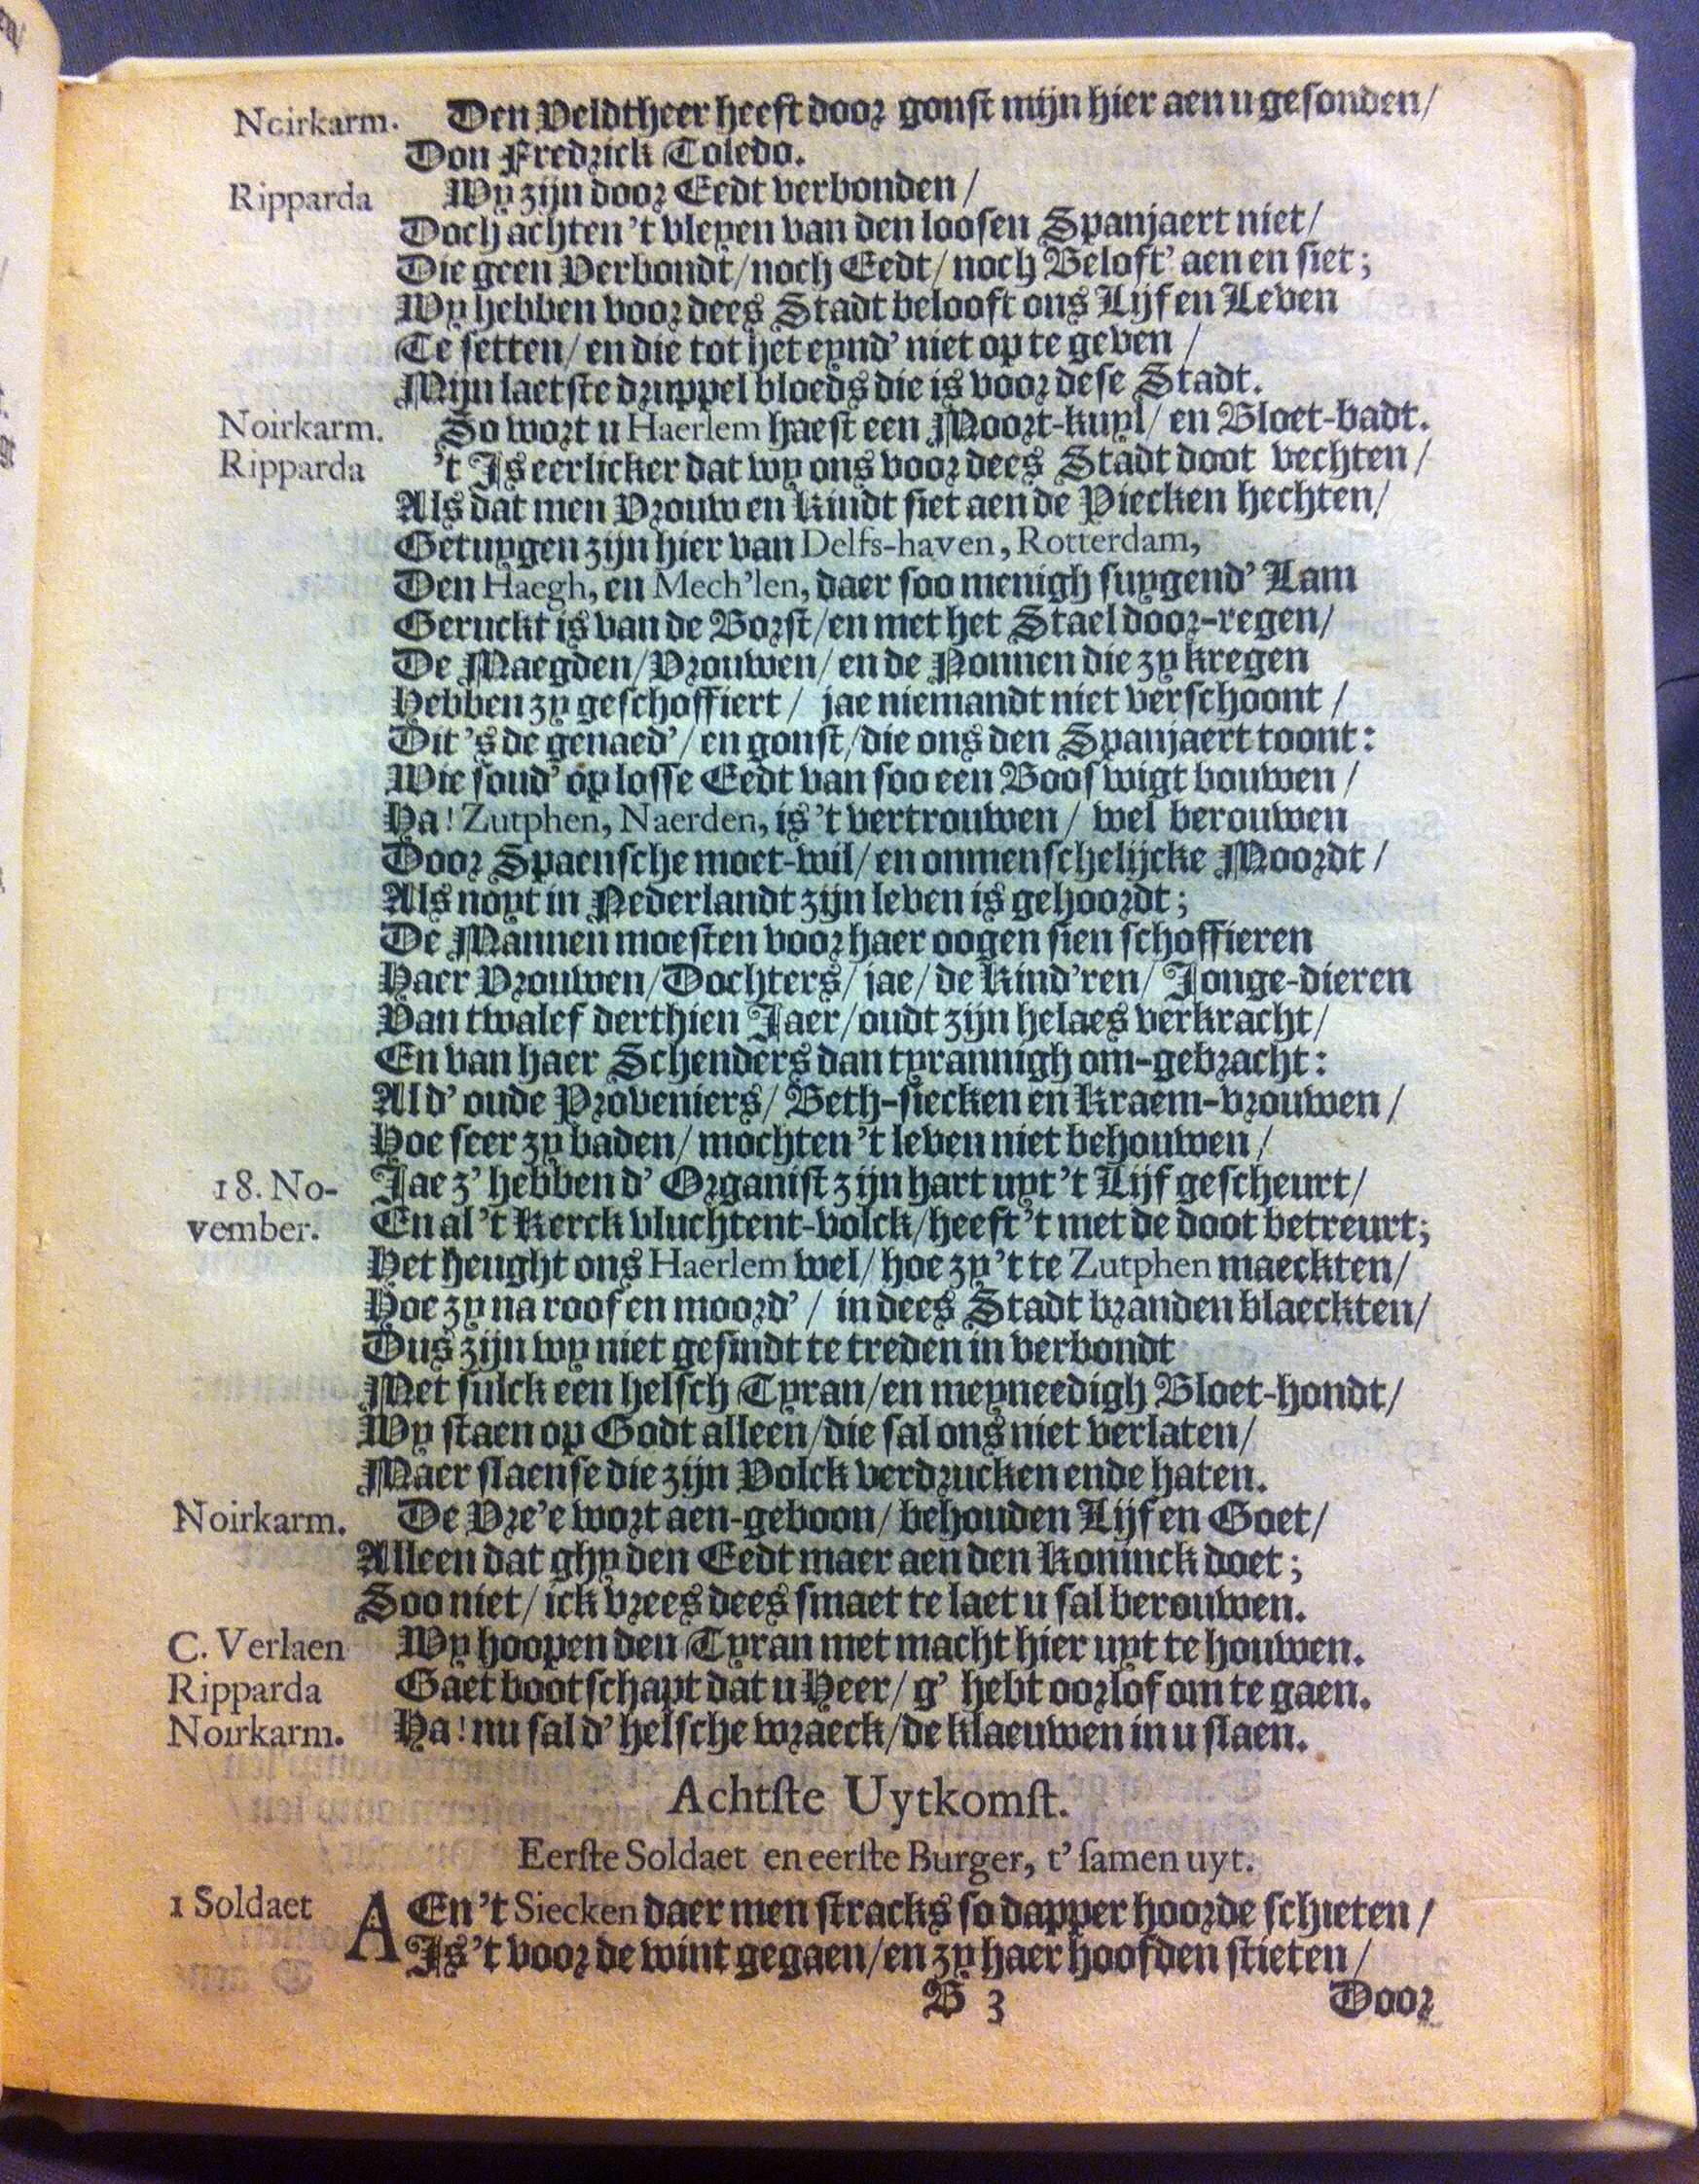 Noirkarm. Den Veldtheer heeft door gonst mijn hier aen u gesonden/
Don Fredrick Toledo.
Ripparda Wy zijn door Eedt verbonden/
Doch achten 't vleyen van den loosen Spanjaert niet/
Die geen Verbondt/ noch Eedt/ noch Beloft' aen en siet;
Wy hebben voor dees Stadt belooft ons Lijf en Leven
Te setten/ en die tot het eynd' niet op te geven/
Mijn laetste druppel bloeds die is voor dese Stadt.
Noirkarm. So wort u Haerlem haest een Moort-kuyl/ en Bloet-badt.
Ripparda 't Is eerlicker dat wy ons voor dees Stadt doot vechten/
Als dat men Vrouw en Kindt siet aen de Piecken hechten/
Getuygen zijn hier van Delfs-haven, Rotterdam,
Den Haegh, en Mech'len, daer soo menigh suygend' Lam
Geruckt is van de Borst/ en met het Stael door-regen/
De Maegden/ Vrouwen/ en de Nonnen die zy kregen
Hebben zy geschoffiert/ jae niemandt niet verschoont/
Dit 's de genaed'/ en gonst/ die ons den Spanjaert toont:
Wie soud' op losse Eedt van soo een Booswigt bouwen/
Ha! Zutphen, Naerden, is 't vertrouwen/ wel berouwen
Door Spaensche moet-wil/ en onmenschelijcke Moordt/
Als noyt in Nederlandt zijn leven is gehoordt;
De Mannen moesten voor haer oogen sien schoffieren
Haer Vrouwen/ Dochters/ jae/ de Kind'ren/ Jonge-dieren
Van twalef derthien Jaer/ oudt zijn helaes verkracht/
En van haer Schenders dan tyrannigh om-gebracht:
Al d' oude Proveniers/ Beth-siecken en Kraem-vrouwen/
Hoe seer zy baden/ mochten 't leven niet behouwen/
18. No- Jae z' hebben d' Organist zijn hart uyt 't Lijf gescheurt/
vember. En al 't Kerck vluchtent-volck/ heeft 't met de doot betreurt;
Het heught ons Haerlem wel/ hoe zy 't te Zutphen maeckten/
Hoe zy na roof en moord'/ in dees Stadt branden blaeckten/
Dus zijn wy niet gesindt te treden in verbondt
Met sulck een helsch Tyran/ en meyneedigh Bloet-hondt/
Wy staen op Godt alleen/ die sal ons niet verlaten/
Maer slaen se die zijn Volck verdrucken ende haten.
Noirkarm. De Vre'e wort aen-geboon/ behouden Lijf en Goet/
Alleen dat ghy den Eedt maer aen den Koninck doet;
Soo niet/ ick vrees dees smaet te laet u sal berouwen.
C. Verlaen Wy hoopen den Tyran met macht hier uyt te houwen.
Ripparda Gaet bootschapt dat u Heer/ g' hebt oorlof om te gaen.
Noirkarm. Ha! nu sal d' helsche wraeck/ de klaeuwen in u slaen.
Achtste Uytkomst.
Eerste Soldaet en eerste Burger, t' samen uyt.
1 Soldaet AEn 't Siecken daer men stracks so dapper hoorde schieten/
Is 't voor de wint gegaen/ en zy haer hoofden stieten/
B 3 Door